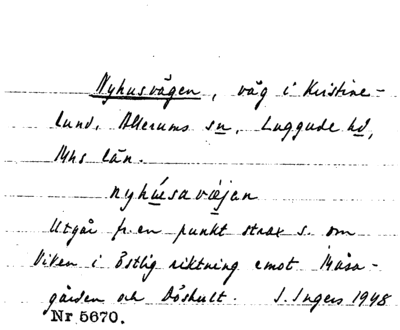 Nyhusvägen, väg i Kristine-
lund, Allerums sn, Luggude hd,
Mhs län.
nyhúsavæjan
Utgår fr en punkt strax s. om
Viken i östlig riktning emot Måsa-
gården och Döshult. I. Ingers 1948
Nr 5670.